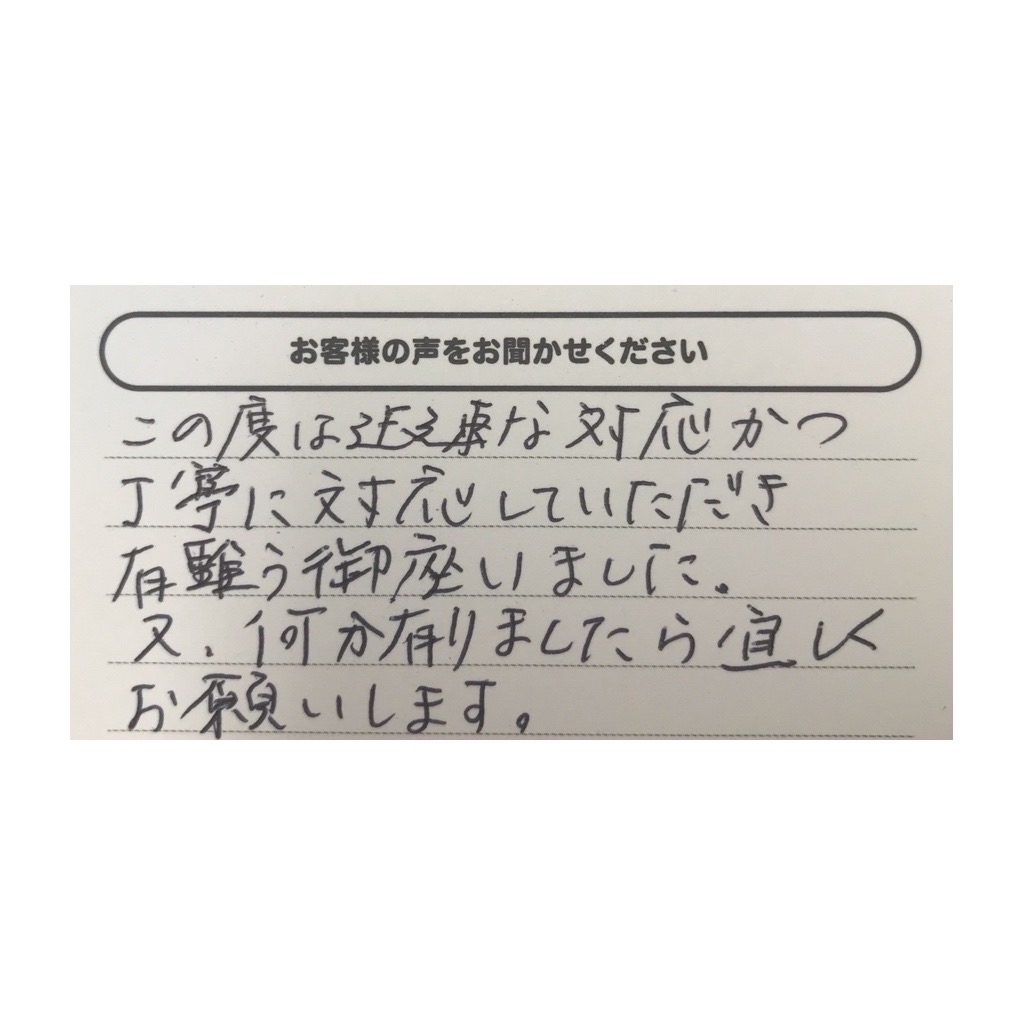 お客様の声をお聞かせください
この度は迅速な対応かつ
丁寧に対応していただき
有難う御座いました。
又、何か有りましたら宜しく
お願いします。